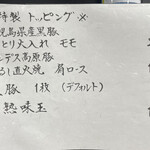 特製 トッピング※
児島県産黒豚
とり火入れ モモ
ンデス高原豚
るし直火焼 肩ロース
豚 1枚 (デフォルト)
熟味玉